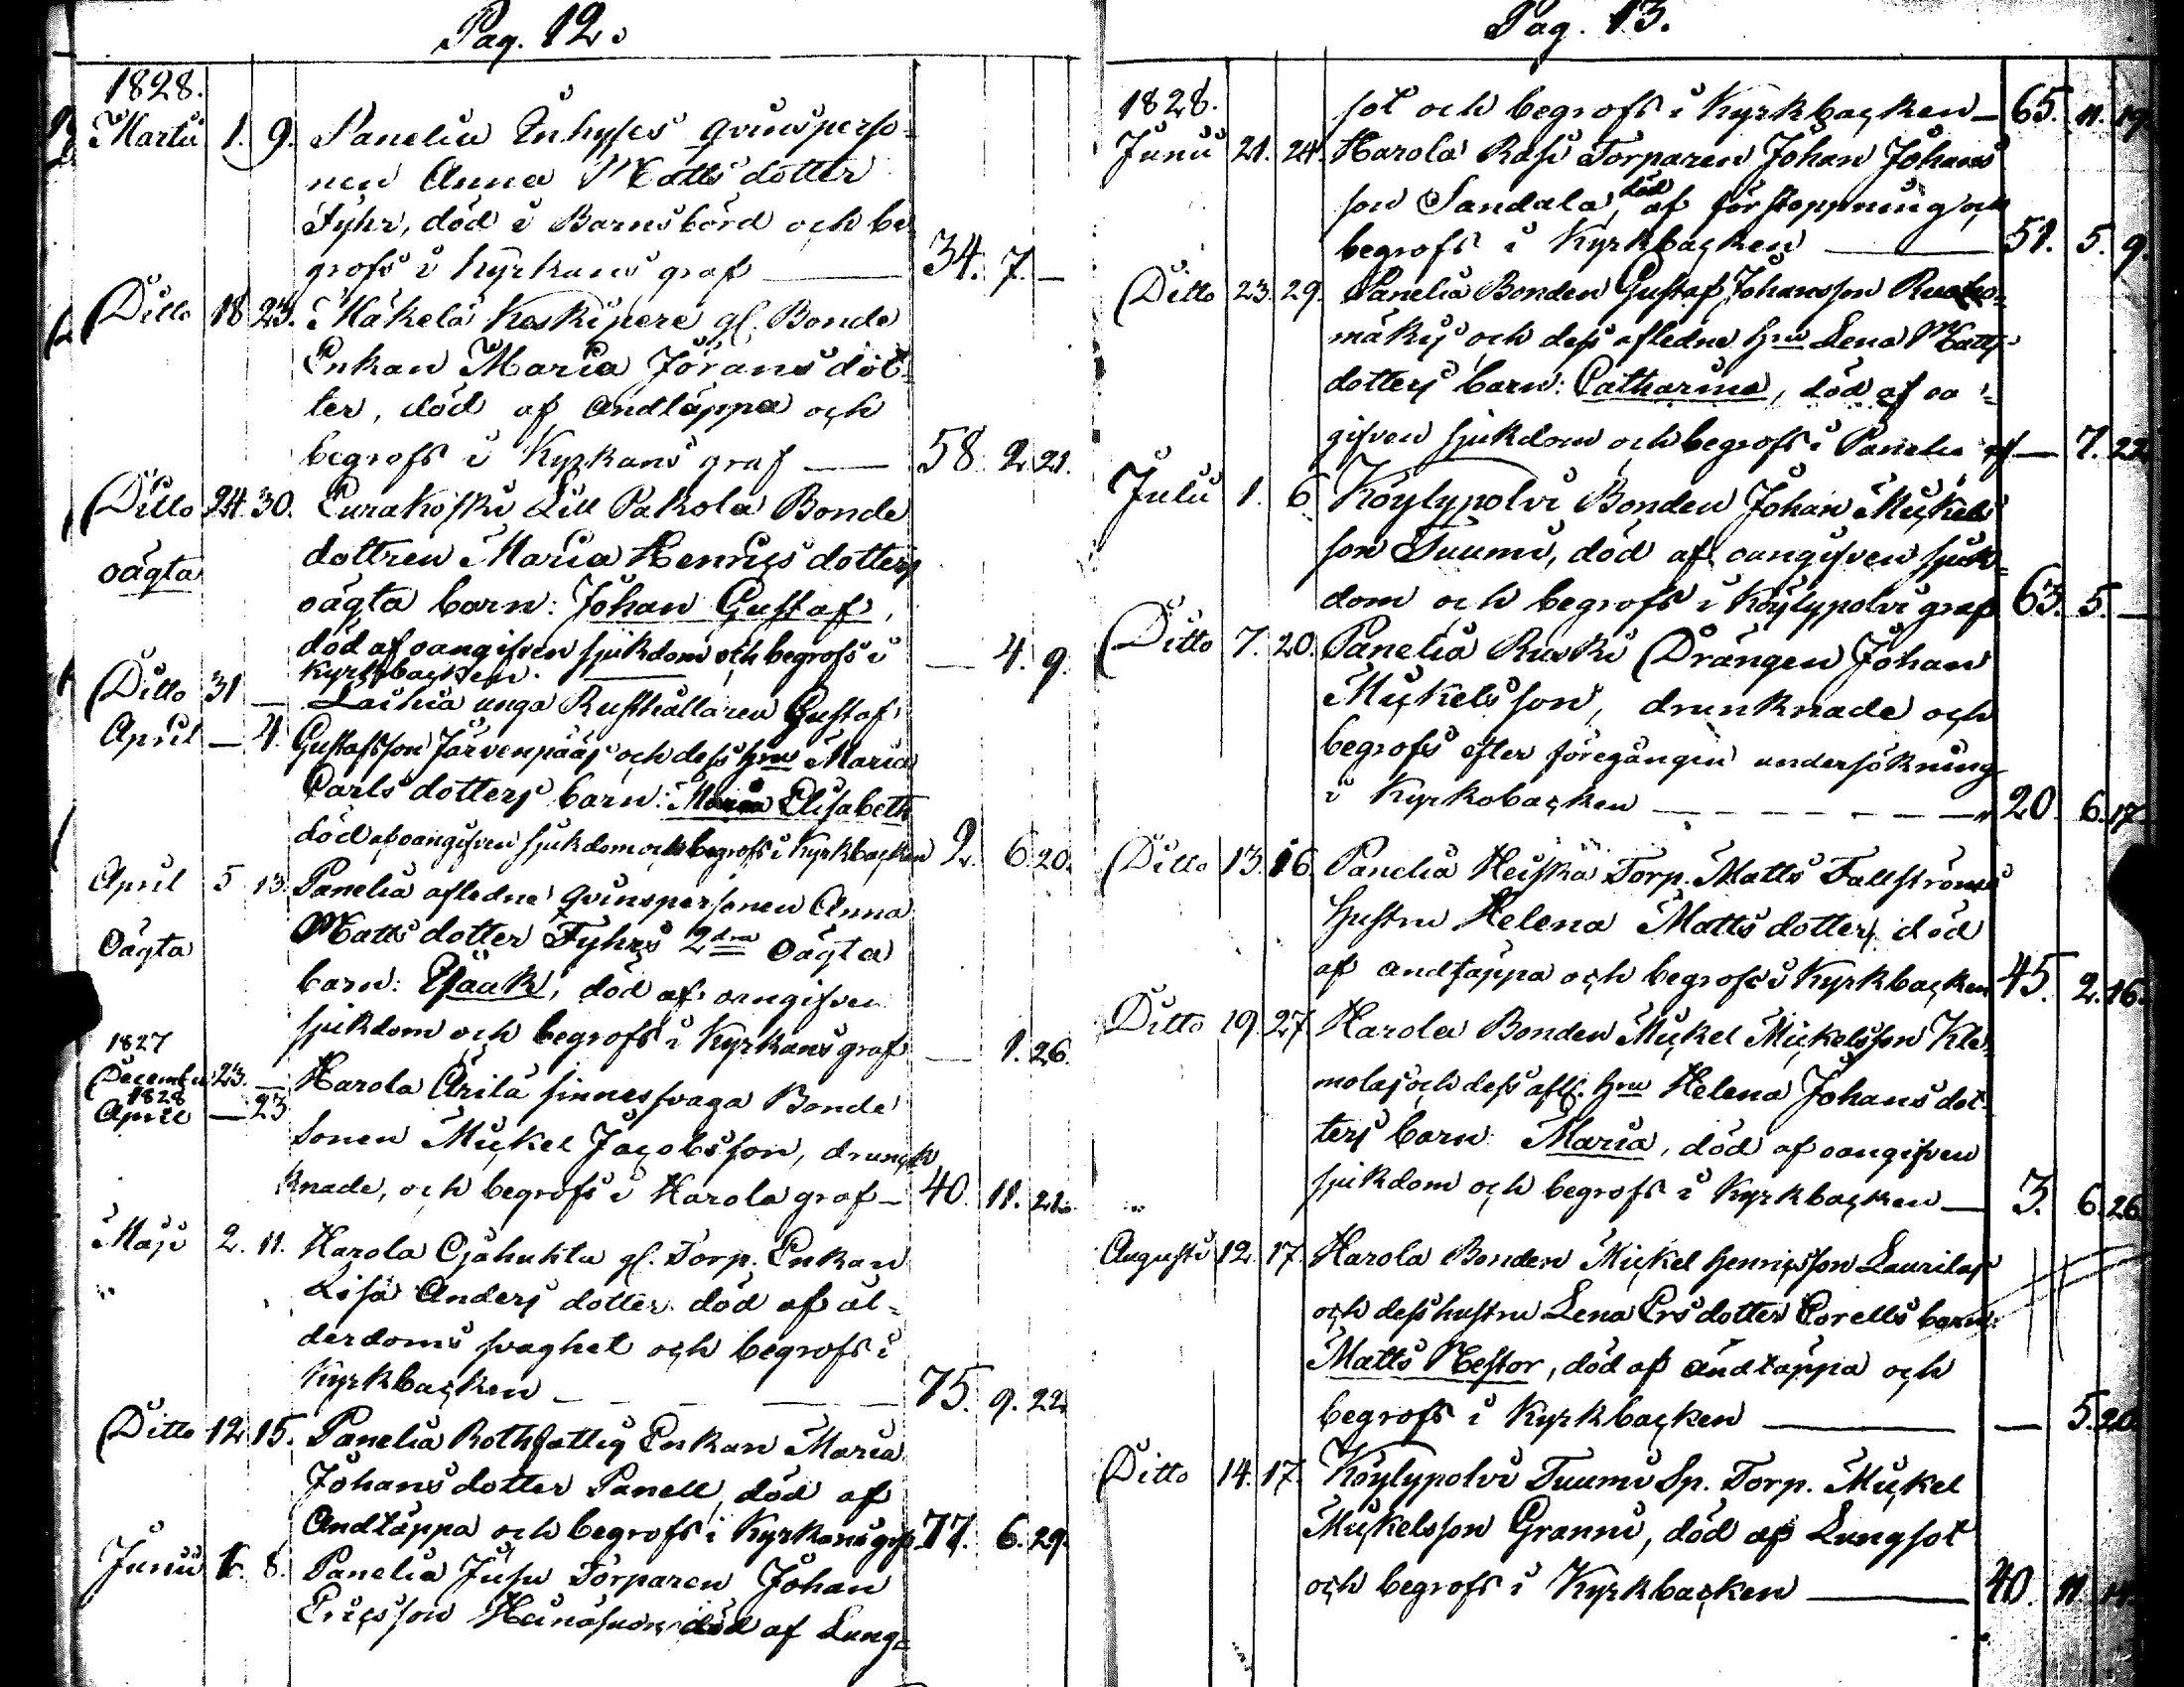 Pag. 12.
1828.
Martii 1. 9. Panelia Inhyses qvinsperso-
nen Anna Matts dotter
Fyhr, död i Barnsbörd och be
grofs i Kyrkans graf — 34. 7. —
Ditto 18 23. Mäkelä Keskipere gl. Bonde
Enkan Maria Jörans dot-
ter, död af andtäppa och
begrofs i Kyrkans graf — 58 2. 21.
Ditto 24. 30. Eurakoski Lill Pakola Bonde
oägta dottren Maria Henrics dotters
oägta barn: Johan Gustaf,
död af oangifven sjukdom och begrofs i — 4. 9.
Kyrkbacken.
Ditto 31 — Laihia unga Rusthållaren Gustaf
April — 4. Gustafsson Järvenpääs och dess hru Maria
Carls dotters barn: Maria Elisabeth
död af oangifven sjukdom och begrofs i Kyrkbacken 2. 6 20.
April 5 13. Panelia afledne qvinspersonen Anna
Oägta Matts dotter Fyhrs 2dra oägta
barn: Esaak, död af oangifven
sjukdom och begrofs i Kyrkans graf — 1. 26.
1827
December 23. — Harola Arila sinnessvaga Bonde
1828
April — 23 sonen Mickel Jacobsson, drunck
knade, och begrofs i Harola graf — 40. 11. 21.
Maji 2. 11. Harola Ojahuhta gl. Torp. Enkan
Lisa Anders dotter död af ål-
derdoms svaghet och begrofs i
Kyrkbacken — 75. 9. 22.
Ditto 12 15. Panelia Rothfattig Enkan Maria
Johans dotter Panell, död af
Andtäppa och begrofs i Kyrkans graf 77. 6. 29.
Junii 1. 8. Panelia Jusu Torparen Johan
Ericsson död af Lung-
Pag. 13.
1828. sot och begrofs i Kyrkbacken — 65. 11. 19.
Junii 21. 24. Harola Rasi Torparen Johan Johans
son Sandala, död af förstoppning och
begrofs i Kyrkbacken — 51. 5. 9.
Ditto 23. 29. Panelia Bonden Gustaf Johansson
mäkis och dess afledne hru Lena Matts
dotters barn: Catharina, död af oa
gifven sjukdom och begrofs i Panelia gf — 7. 22
Julii 1. 6 Köylypolvi Bonden Johan Mickels
son Tuumi, död af oangifven sjuk-
dom och begrofs i Köylypolvi graf 63. 5. —
Ditto 7. 20. Panelia Ruski Drängen Johan
Mickelsson, drunknade och
begrofs efter föregången undersökning
i Kyrkobacken — 20. 6. 17
Ditto 13. 16 Panelia Heiska Torp. Matts Fallströms
hustru Helena Matts dotter, död
af andtäppa och begrofs i Kyrkbacken 45. 2. 16.
Ditto 19. 27 Harola Bonden Mickel Mickelsson Kle-
molas och dess afl. hru Helena Johans dot-
ters barn: Maria, död af oangifven
sjukdom och begrofs i Kyrkbacken — 3. 6. 26
Augusti 12. 17. Harola Bonden Mickel Henricsson Laurilas
och dess hustru Lena Ersdotter Corells barn:
Matts Nestor, död af andtäppa och
begrofs i Kyrkbacken — — 5. 20.
Ditto 14. 17 Köylypolvi Tuumi Sp. Torp. Mickel
Mickelsson Granni, död af Lungsot
och begrofs i Kyrkbacken — 40. 11.